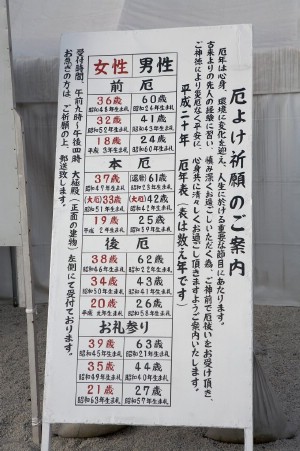 厄よけ祈願のご案内
厄年は心身、環境に変化を迎え、人生に於ける重要な節目にあたります。
古来よりの先人の経験に習い、慎み深くお過ごしいただく為、ご神前で厄祓いをお受け頂き、
ご神徳により災厄なく平安に、心身共に清々しくお過ごし頂きますようご案内いたします。
平成二十年 厄年表(表は数え年です)
女性 男性
前厄
36歳 60歳
昭和48年生まれ 昭和24年生まれ
32歳 41歳
昭和52年生まれ 昭和43年生まれ
18歳 24歳
平成3年生まれ 昭和60年生まれ
本厄
37歳 (還暦)61歳
昭和47年生まれ 昭和23年生まれ
(大厄)33歳 (大厄)42歳
昭和51年生まれ 昭和42年生まれ
19歳 25歳
平成2年生まれ 昭和59年生まれ
後厄
38歳 62歳
昭和46年生まれ 昭和22年生まれ
34歳 43歳
昭和50年生まれ 昭和41年生まれ
20歳 26歳
平成元年生まれ 昭和58年生まれ
お礼参り
39歳 63歳
昭和45年生まれ 昭和21年生まれ
35歳 44歳
昭和49年生まれ 昭和40年生まれ
21歳 27歳
昭和63年生まれ 昭和57年生まれ
受付時間、午前九時〜午後四時 大極殿(正面の建物)左側にて受付ております。
お急ぎの方は、ご祈願の上、郵送致します。